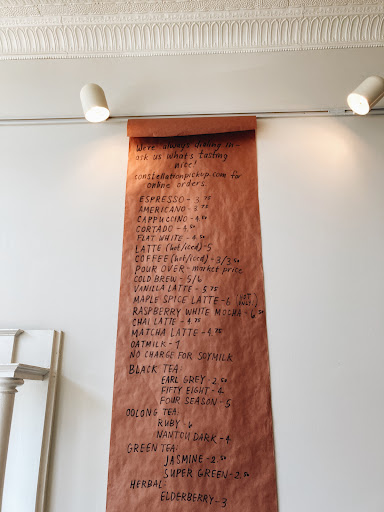 We're always dialing in -
ask us what's tasting
nice!
constellationpickup.com for
online orders
ESPRESSO - 3.75
AMERICANO - 3.75
CAPPUCCINO - 4.50
CORTADO - 4.50
FLAT WHITE - 4.50
LATTE (hot/iced) - 5
COFFEE (hot/iced) - 3/3.50
POUR OVER - market price
COLD BREW - 5/6
VANILLA LATTE - 5.75
MAPLE SPICE LATTE - 6 (HOT ONLY!)
RASPBERRY WHITE MOCHA - 6.50
CHAI LATTE - 4.75
MATCHA LATTE - 4.75
OATMILK - 1
NO CHARGE FOR SOYMILK
BLACK TEA:
EARL GREY - 2.50
FIFTY EIGHT - 4
FOUR SEASON - 5
OOLONG TEA:
RUBY - 6
NANTOU DARK - 4
GREEN TEA:
JASMINE - 2.50
SUPER GREEN - 2.50
HERBAL:
ELDERBERRY - 3